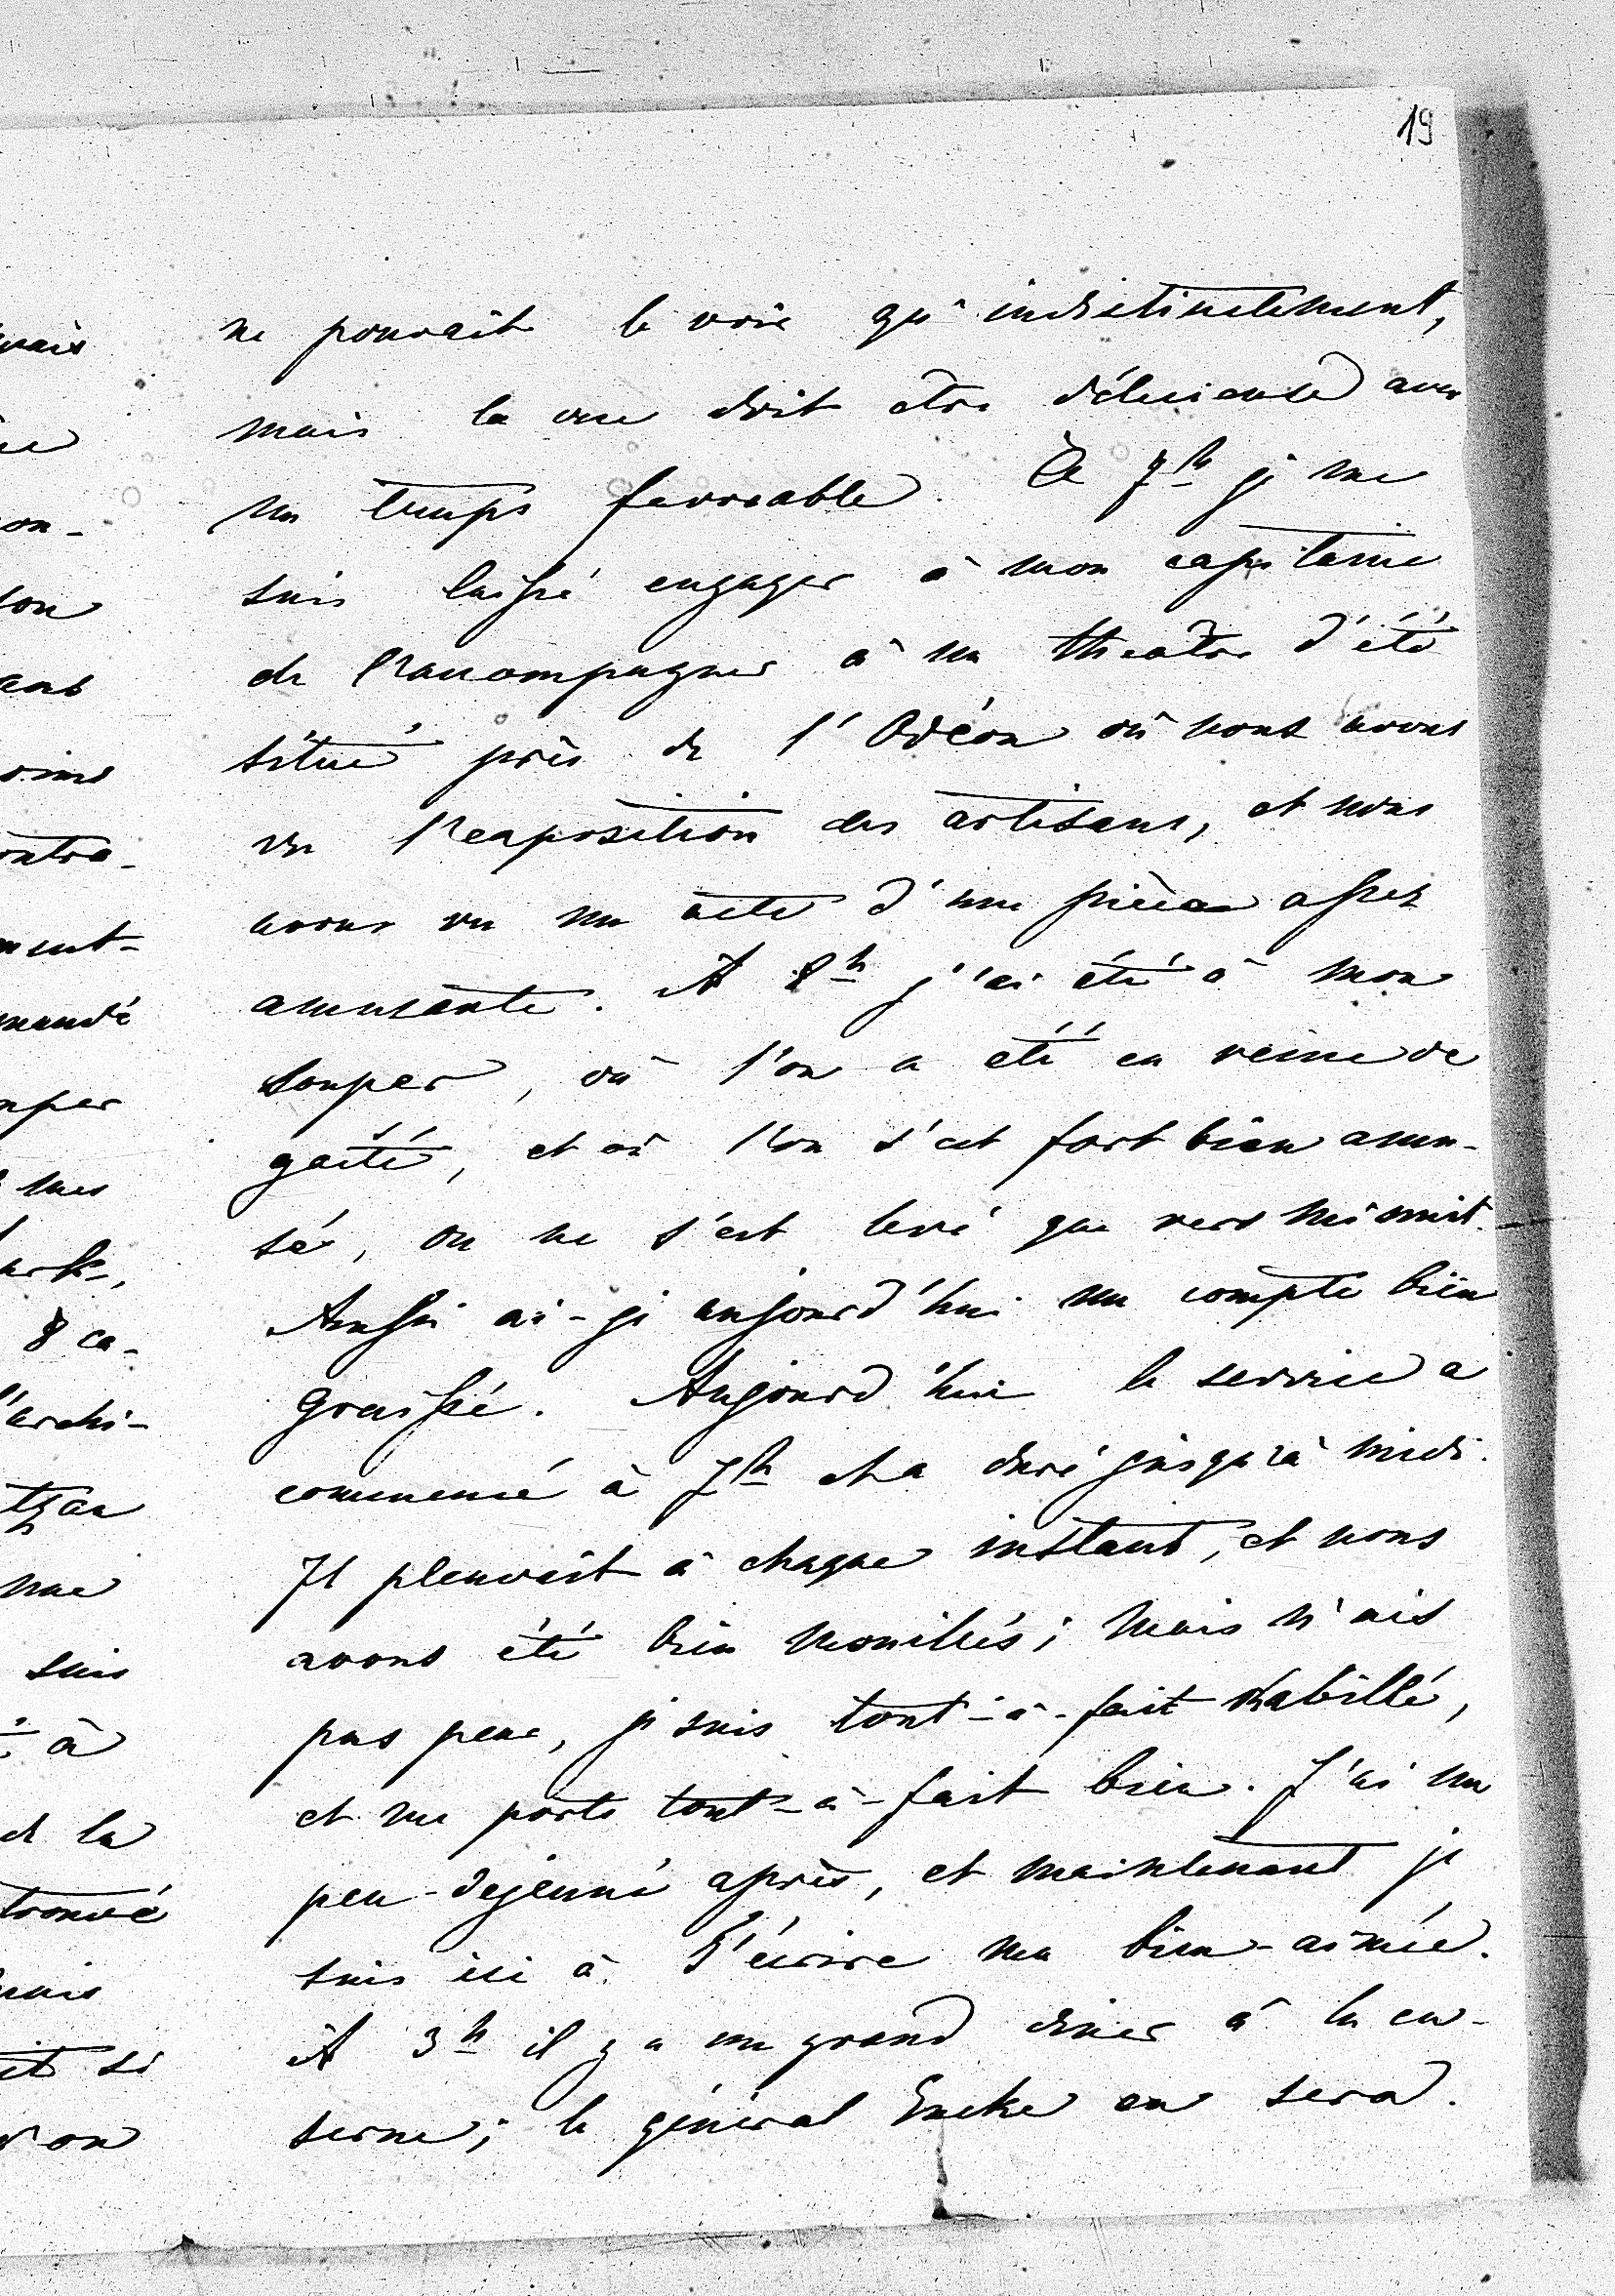 19
ne pouvait le voir qu'indistinctement,
mais la vue doit être délicieuse avec
un temps favorable. À 7h je me
suis laissé engager à mon capitaine
de l'accompagner à un théatre d'été
situé près de l'Odéon où nous avons
vu l'exposition des artisans, et nous
avons vu un acte d'une pièce assez
amusante. A 8h j'ai été à mon
souper, où l'on a été en veine de
gaité, et où l'on s'est fort bien amu-
sé, on ne s'est levé que vers minuit.
Aussi ai-je aujourd'hui un compte bien
graissé. Aujourd'hui le service a
commencé à 7h et a duré jusqu'à midi.
Il pleuvait à chaque instant, et nous
avons été bien mouillés; mais n'ais
pas peur, je suis tout-à-fait rhabillé,
et me porte tout-à-fait bien. J'ai un
peu dejeuné après, et maintenant je
suis ici à t'écrire ma bien-aimée.
A 3h il y a un grand diner à la ca-
serne; le général Encke en sera.